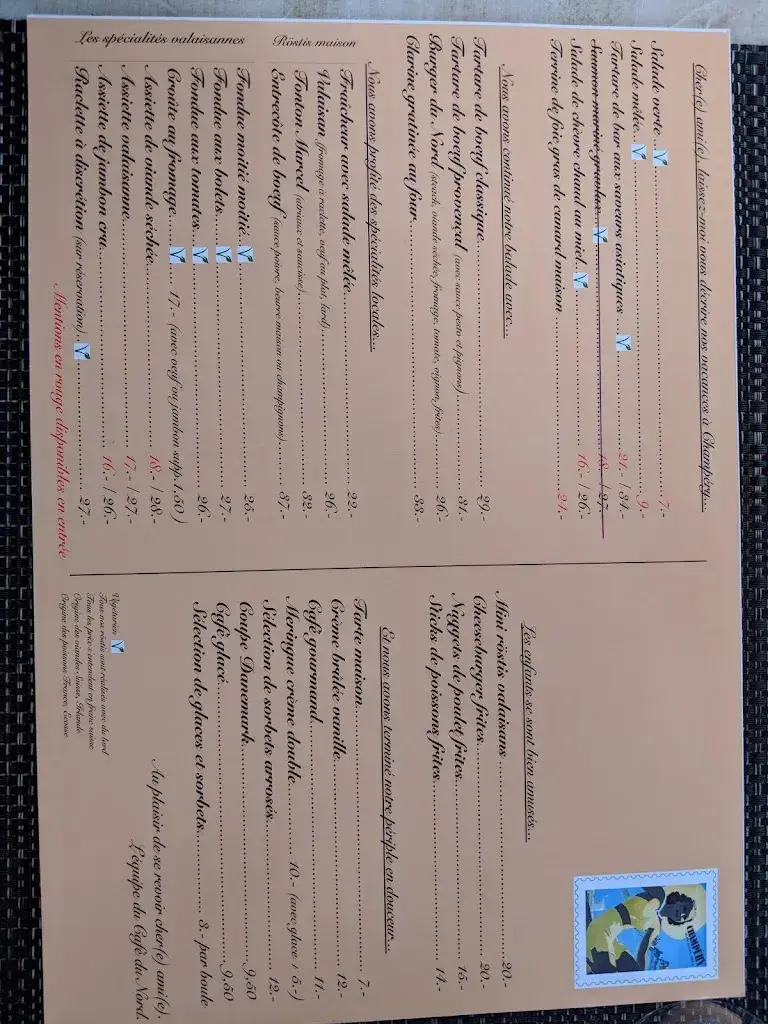 Cher(e) ami(e), laissez-moi vous décrire nos vacances à Champéry...
Salade verte 7.-
Salade mêlée 9.-
Tartare de bar aux saveurs asiatiques 21.- / 34.-
Saumon mariné gravlax 18.- / 27.-
Salade de chèvre chaud au miel 16.- / 26.-
Terrine de foie gras de canard maison 24.-
Nous avons continué notre balade avec...
Tartare de boeuf classique 29.-
Tartare de boeuf provençal (avec sauce pesto et pignons) 31.-
Burger du Nord (steack, viande séchée, fromage, tomate, oignon, frites) 26.-
Clarine gratinée au four 33.-
Nous avons profité des spécialités locales...
Röstis maison
Fraîcheur avec salade mêlée 22.-
Valaisan (fromage à raclette, oeuf au plat, lard) 26.-
Tonton Marcel (atriaux et saucisse) 32.-
Entrecôte de boeuf (sauce poivre, beurre maison ou champignons) 37.-
Les spécialités valaisannes
Fondue moitié moitié 25.-
Fondue aux bolets 27.-
Fondue aux tomates 26.-
Croûte au fromage 17.- (avec oeuf ou jambon supp. 1,50)
Assiette de viande séchée 18.- / 28.-
Assiette valaisanne 17.- / 27.-
Assiette de jambon cru 16.- / 26.-
Raclette à discrétion (sur réservation) 27.-
Mentions en rouge disponibles en entrée
CHAMPÉRY
Les enfants se sont bien amusés...
Mini röstis valaisans 20.-
Cheeseburger frites 20.-
Nuggets de poulet frites 15.-
Sticks de poissons frites 14.-
Et nous avons terminé notre périple en douceur...
Tarte maison 7.-
Crème brûlée vanille 12.-
Café gourmand 11.-
Meringue crème double 10.- (avec glace + 3.-)
Sélection de sorbets arrosés 12.-
Coupe Danemark 9,50
Café glacé 9,50
Sélection de glaces et sorbets 3.- par boule
Végétarien
Tous nos röstis sont réalisés avec du lard
Tous les prix s'entendent en franc suisse
Origine des viandes Suisse, Irlande
Origine des poissons France, Ecosse
Au plaisir de se revoir cher(e) ami(e).
L'équipe du Café du Nord.